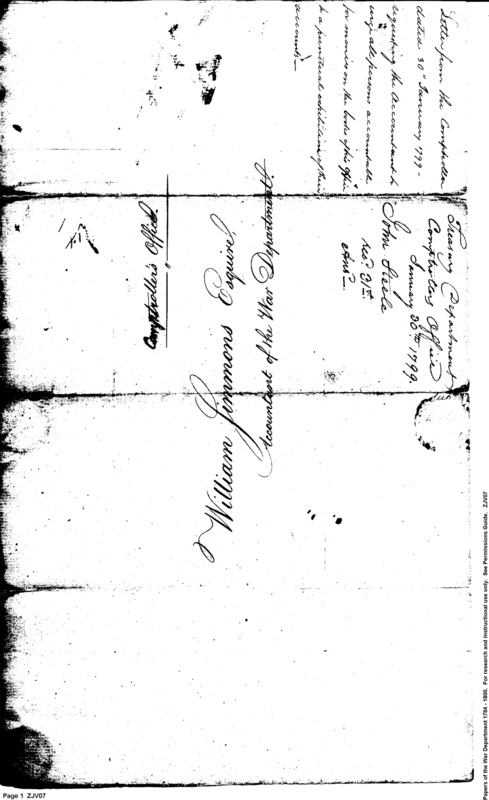 Letter from the Comptroller
dated 30th January 1799 -
requesting the Accountant to
urge all persons accountable
for monies on the books of his Office
to a punctual exhibition of their
accounts -
Treasury Department
Comptrollers Office
January 30th 1799.
John Steele
Rec'd 31st
Ansd -
William Simmons Esquire,
Accountant of the War Department
Comptroller's Office.
Page 1 ZJV07
Papers of the War Department 1784 - 1800. For research and instructional use only. See Permissions Guide. ZJV07